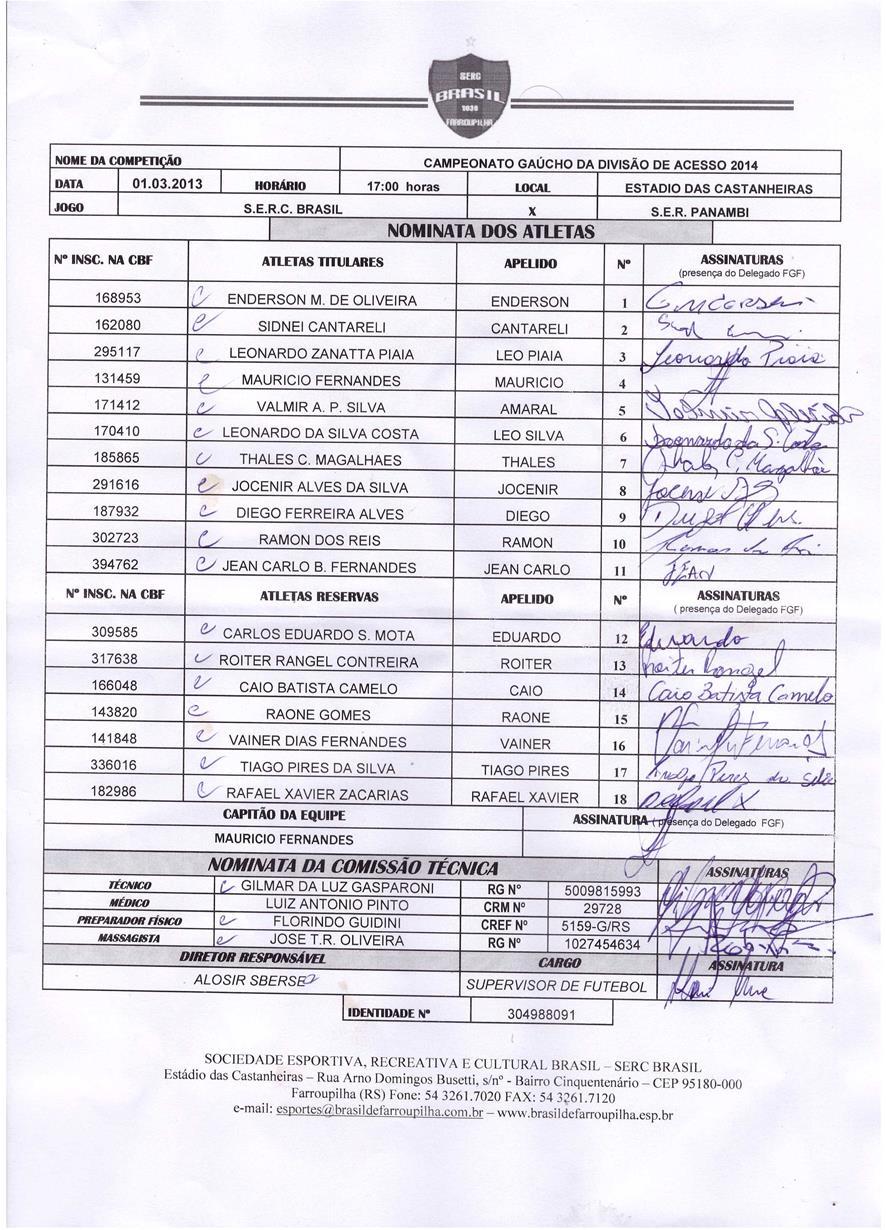 SERC
BRASIL
1939
FARROUPILHA
NOME DA COMPETIÇÃO CAMPEONATO GAÚCHO DA DIVISÃO DE ACESSO 2014
DATA 01.03.2013 HORÁRIO 17:00 horas LOCAL ESTADIO DAS CASTANHEIRAS
JOGO S.E.R.C. BRASIL X S.E.R. PANAMBI
NOMINATA DOS ATLETAS
Nº INSC. NA CBF ATLETAS TITULARES APELIDO Nº ASSINATURAS
(presença do Delegado FGF)
168953 ENDERSON M. DE OLIVEIRA ENDERSON 1 Enderson
162080 SIDNEI CANTARELI CANTARELI 2
295117 LEONARDO ZANATTA PIAIA LEO PIAIA 3 Leonardo Piaia
131459 MAURICIO FERNANDES MAURICIO 4
171412 VALMIR A. P. SILVA AMARAL 5
170410 LEONARDO DA SILVA COSTA LEO SILVA 6 Leonardo da S. Costa
185865 THALES C. MAGALHAES THALES 7 Thales C. Magalhães
291616 JOCENIR ALVES DA SILVA JOCENIR 8
187932 DIEGO FERREIRA ALVES DIEGO 9
302723 RAMON DOS REIS RAMON 10 Ramon dos Reis
394762 JEAN CARLO B. FERNANDES JEAN CARLO 11 JEAN
Nº INSC. NA CBF ATLETAS RESERVAS APELIDO Nº ASSINATURAS
( presença do Delegado FGF)
309585 CARLOS EDUARDO S. MOTA EDUARDO 12 Eduardo
317638 ROITER RANGEL CONTREIRA ROITER 13 Roiter Rangel
166048 CAIO BATISTA CAMELO CAIO 14 Caio Batista Camelo
143820 RAONE GOMES RAONE 15
141848 VAINER DIAS FERNANDES VAINER 16
336016 TIAGO PIRES DA SILVA TIAGO PIRES 17 Tiago Pires da Silva
182986 RAFAEL XAVIER ZACARIAS RAFAEL XAVIER 18 Rafael X
CAPITÃO DA EQUIPE ASSINATURA ( presença do Delegado FGF)
MAURICIO FERNANDES
NOMINATA DA COMISSÃO TÉCNICA ASSINATURAS
TÉCNICO GILMAR DA LUZ GASPARONI RG Nº 5009815993
MÉDICO LUIZ ANTONIO PINTO CRM Nº 29728
PREPARADOR FÍSICO FLORINDO GUIDINI CREF Nº 5159-G/RS
MASSAGISTA JOSE T.R. OLIVEIRA RG Nº 1027454634
DIRETOR RESPONSÁVEL CARGO ASSINATURA
ALOSIR SBERSE SUPERVISOR DE FUTEBOL
IDENTIDADE Nº 304988091
SOCIEDADE ESPORTIVA, RECREATIVA E CULTURAL BRASIL – SERC BRASIL
Estádio das Castanheiras – Rua Arno Domingos Busetti, s/nº - Bairro Cinquentenário – CEP 95180-000
Farroupilha (RS) Fone: 54 3261.7020 FAX: 54 3261.7120
e-mail: esportes@brasildefarroupilha.com.br – www.brasildefarroupilha.esp.br